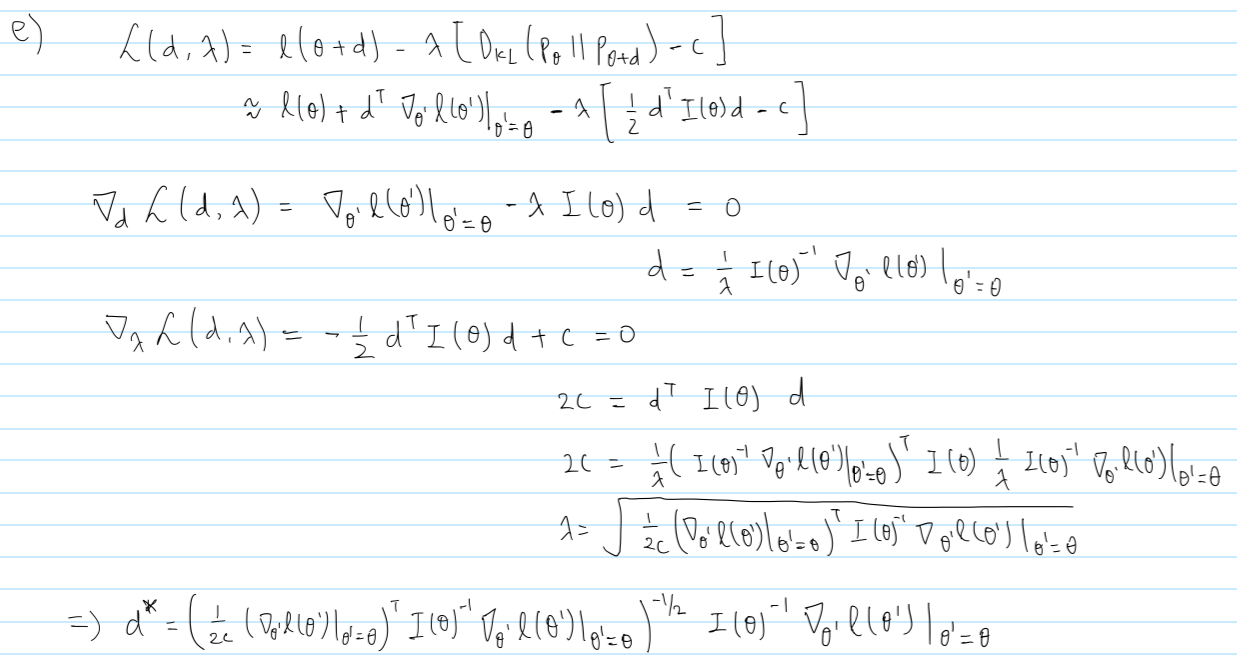 e) ℒ(d, λ) = ℓ(θ+d) - λ [D_KL (p_θ || p_θ+d) - c]
≈ ℓ(θ) + d^T ∇_θ' ℓ(θ')|_θ'=θ - λ [ 1/2 d^T I(θ) d - c ]
∇_d ℒ(d, λ) = ∇_θ' ℓ(θ')|_θ'=θ - λ I(θ) d = 0
d = 1/λ I(θ)^-1 ∇_θ' ℓ(θ) |_θ'=θ
∇_λ ℒ(d, λ) = - 1/2 d^T I(θ) d + c = 0
2c = d^T I(θ) d
2c = 1/λ ( I(θ)^-1 ∇_θ' ℓ(θ')|_θ'=θ )^T I(θ) 1/λ I(θ)^-1 ∇_θ' ℓ(θ')|_θ'=θ
λ = √( 1/2c (∇_θ' ℓ(θ')|_θ'=θ)^T I(θ)^-1 ∇_θ' ℓ(θ')|_θ'=θ )
=) d^* = ( 1/2c (∇_θ' ℓ(θ')|_θ'=θ)^T I(θ)^-1 ∇_θ' ℓ(θ')|_θ'=θ )^-1/2 I(θ)^-1 ∇_θ' ℓ(θ') |_θ'=θ